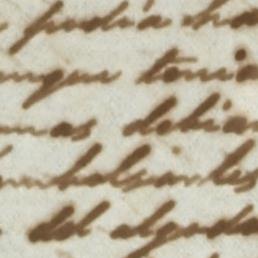 podia ha
unque tenia
mas debian
embolsarles
del algoda